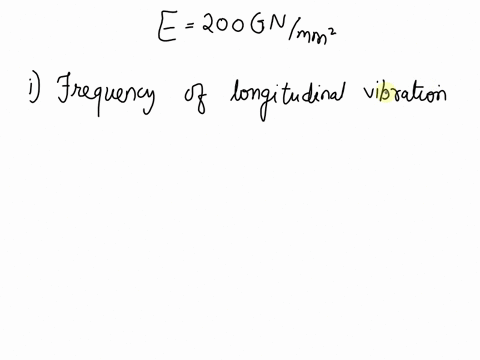 E = 200 GN/mm²
i) Frequency of longitudinal vibration